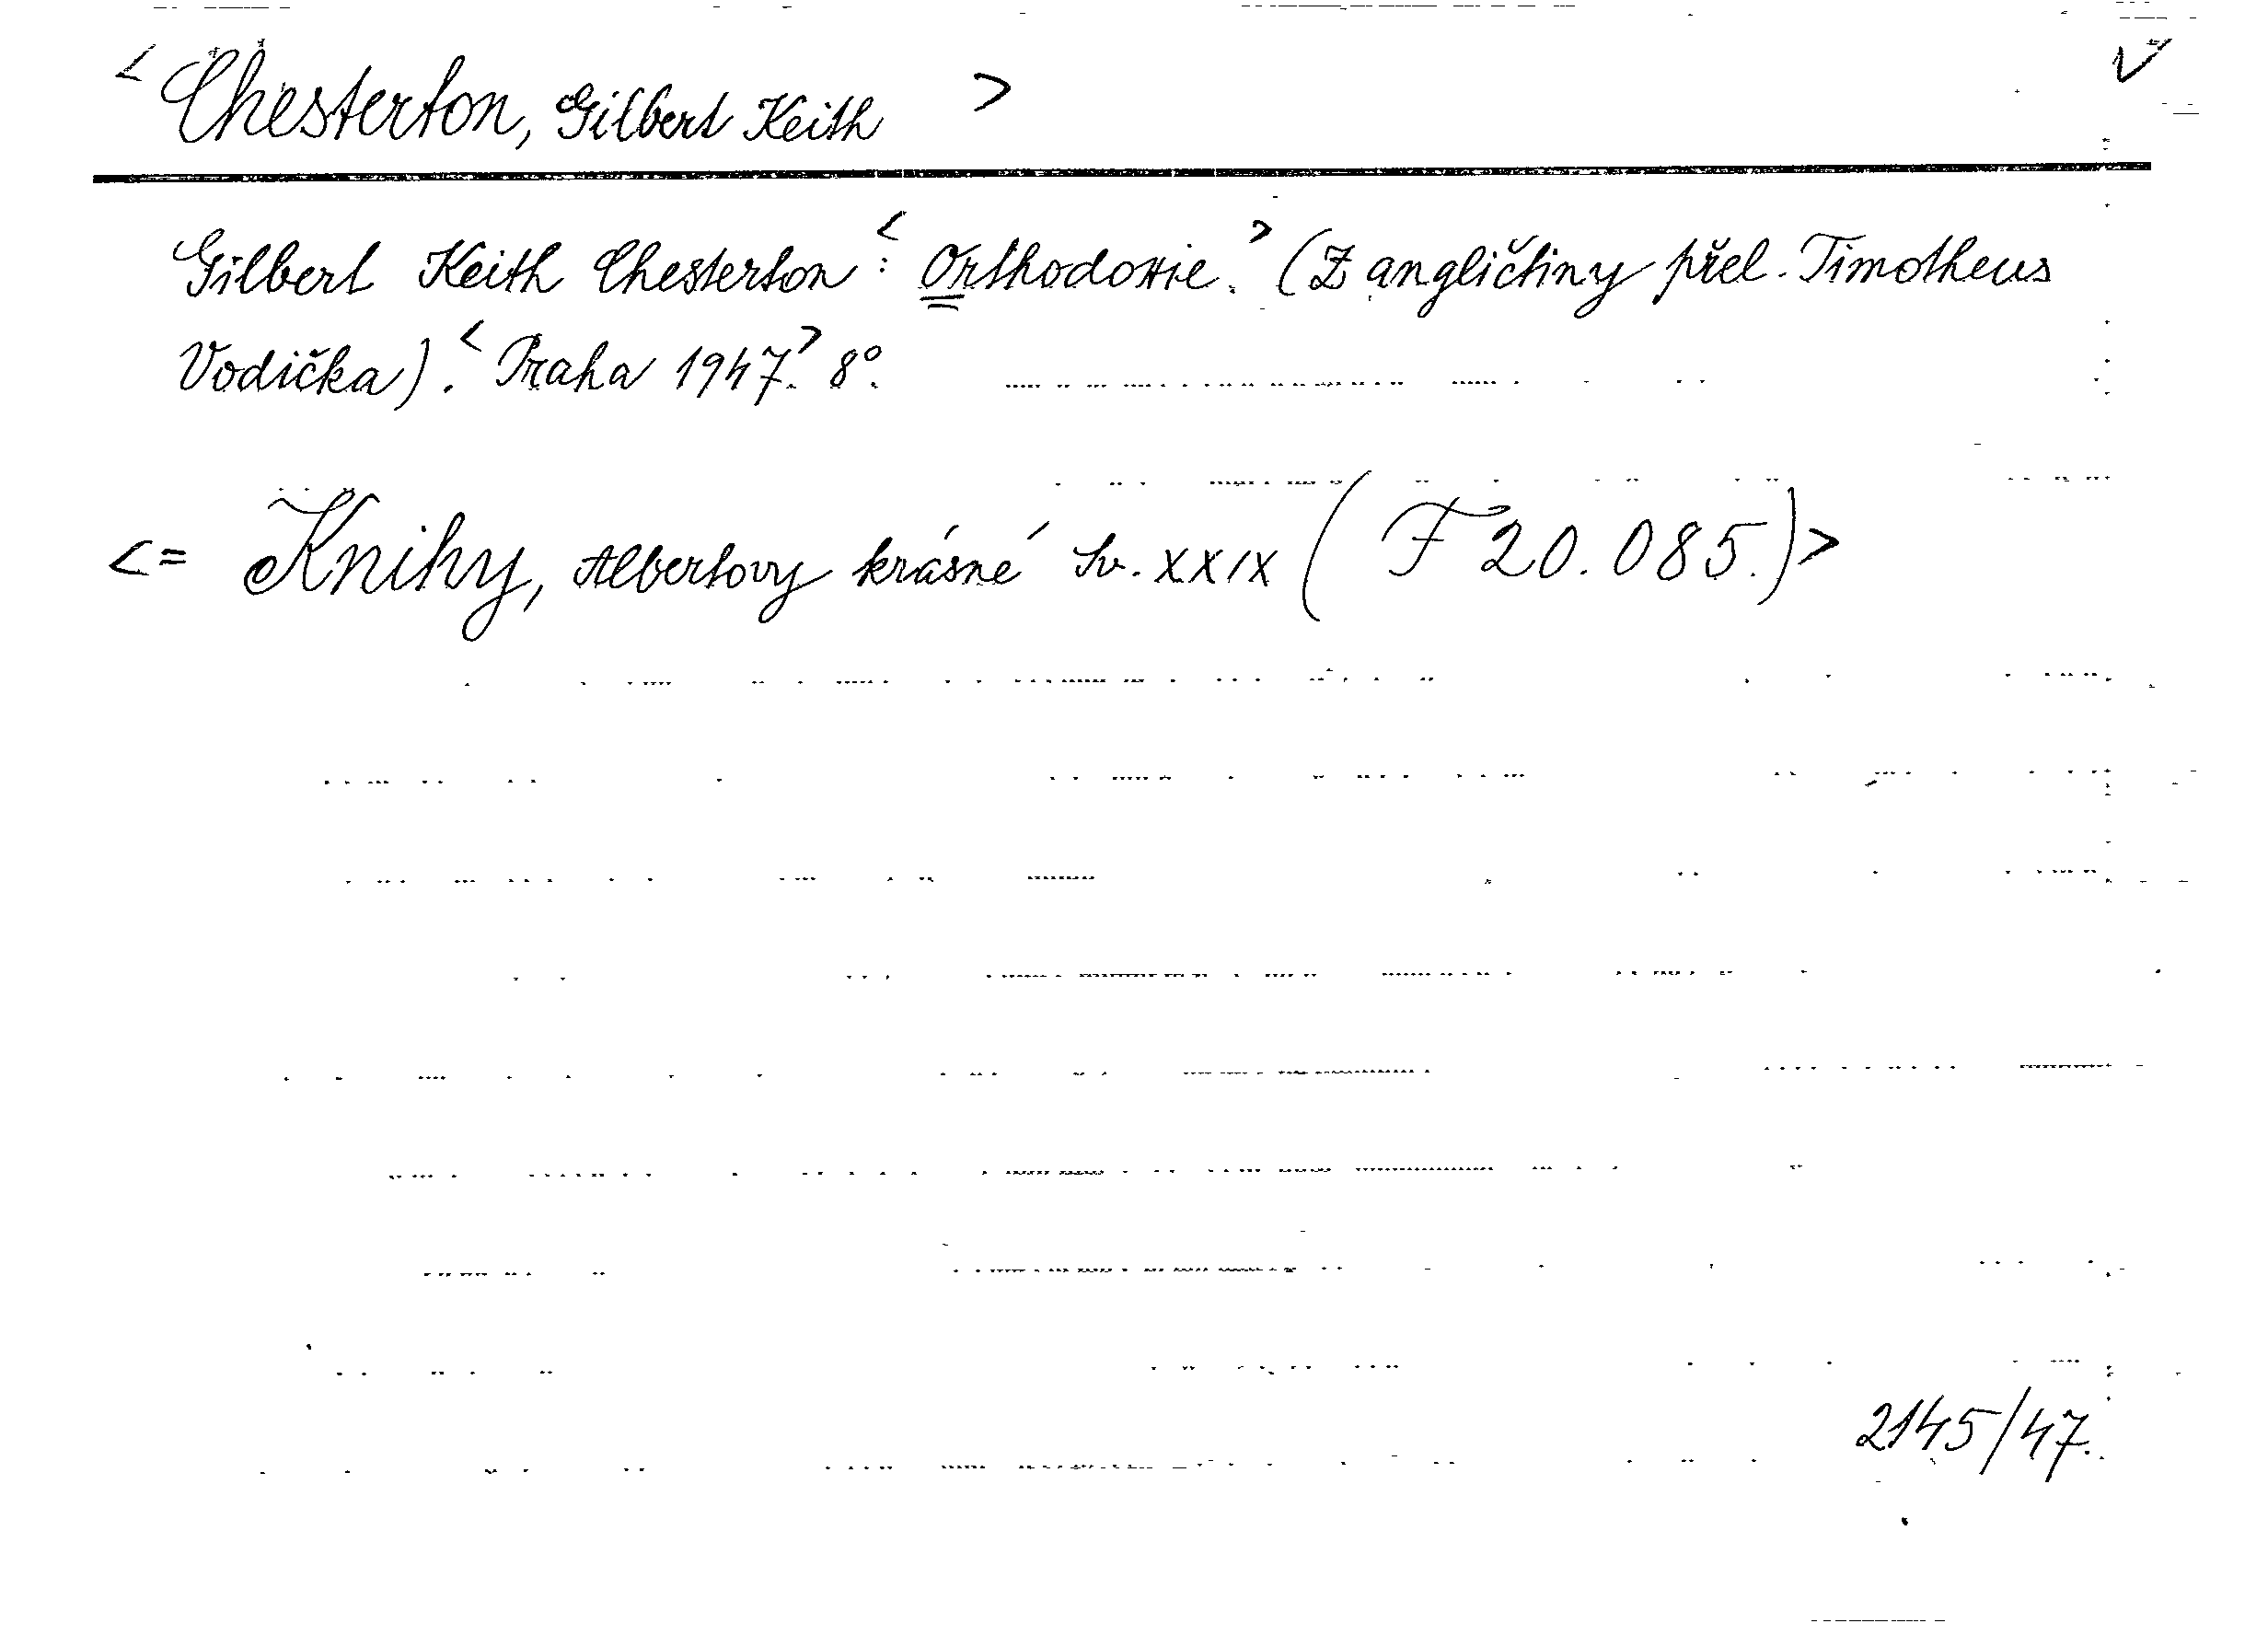 < Chesterton, Gilbert Keith >
Gilbert Keith Chesterton: <Orthodoxie.> (Z angličtiny přel. Timotheus
Vodička). <Praha 1947.> 8°.
<= Knihy, Albertovy krásné Sv. XXIX (F 20.085.)>
2145/47.